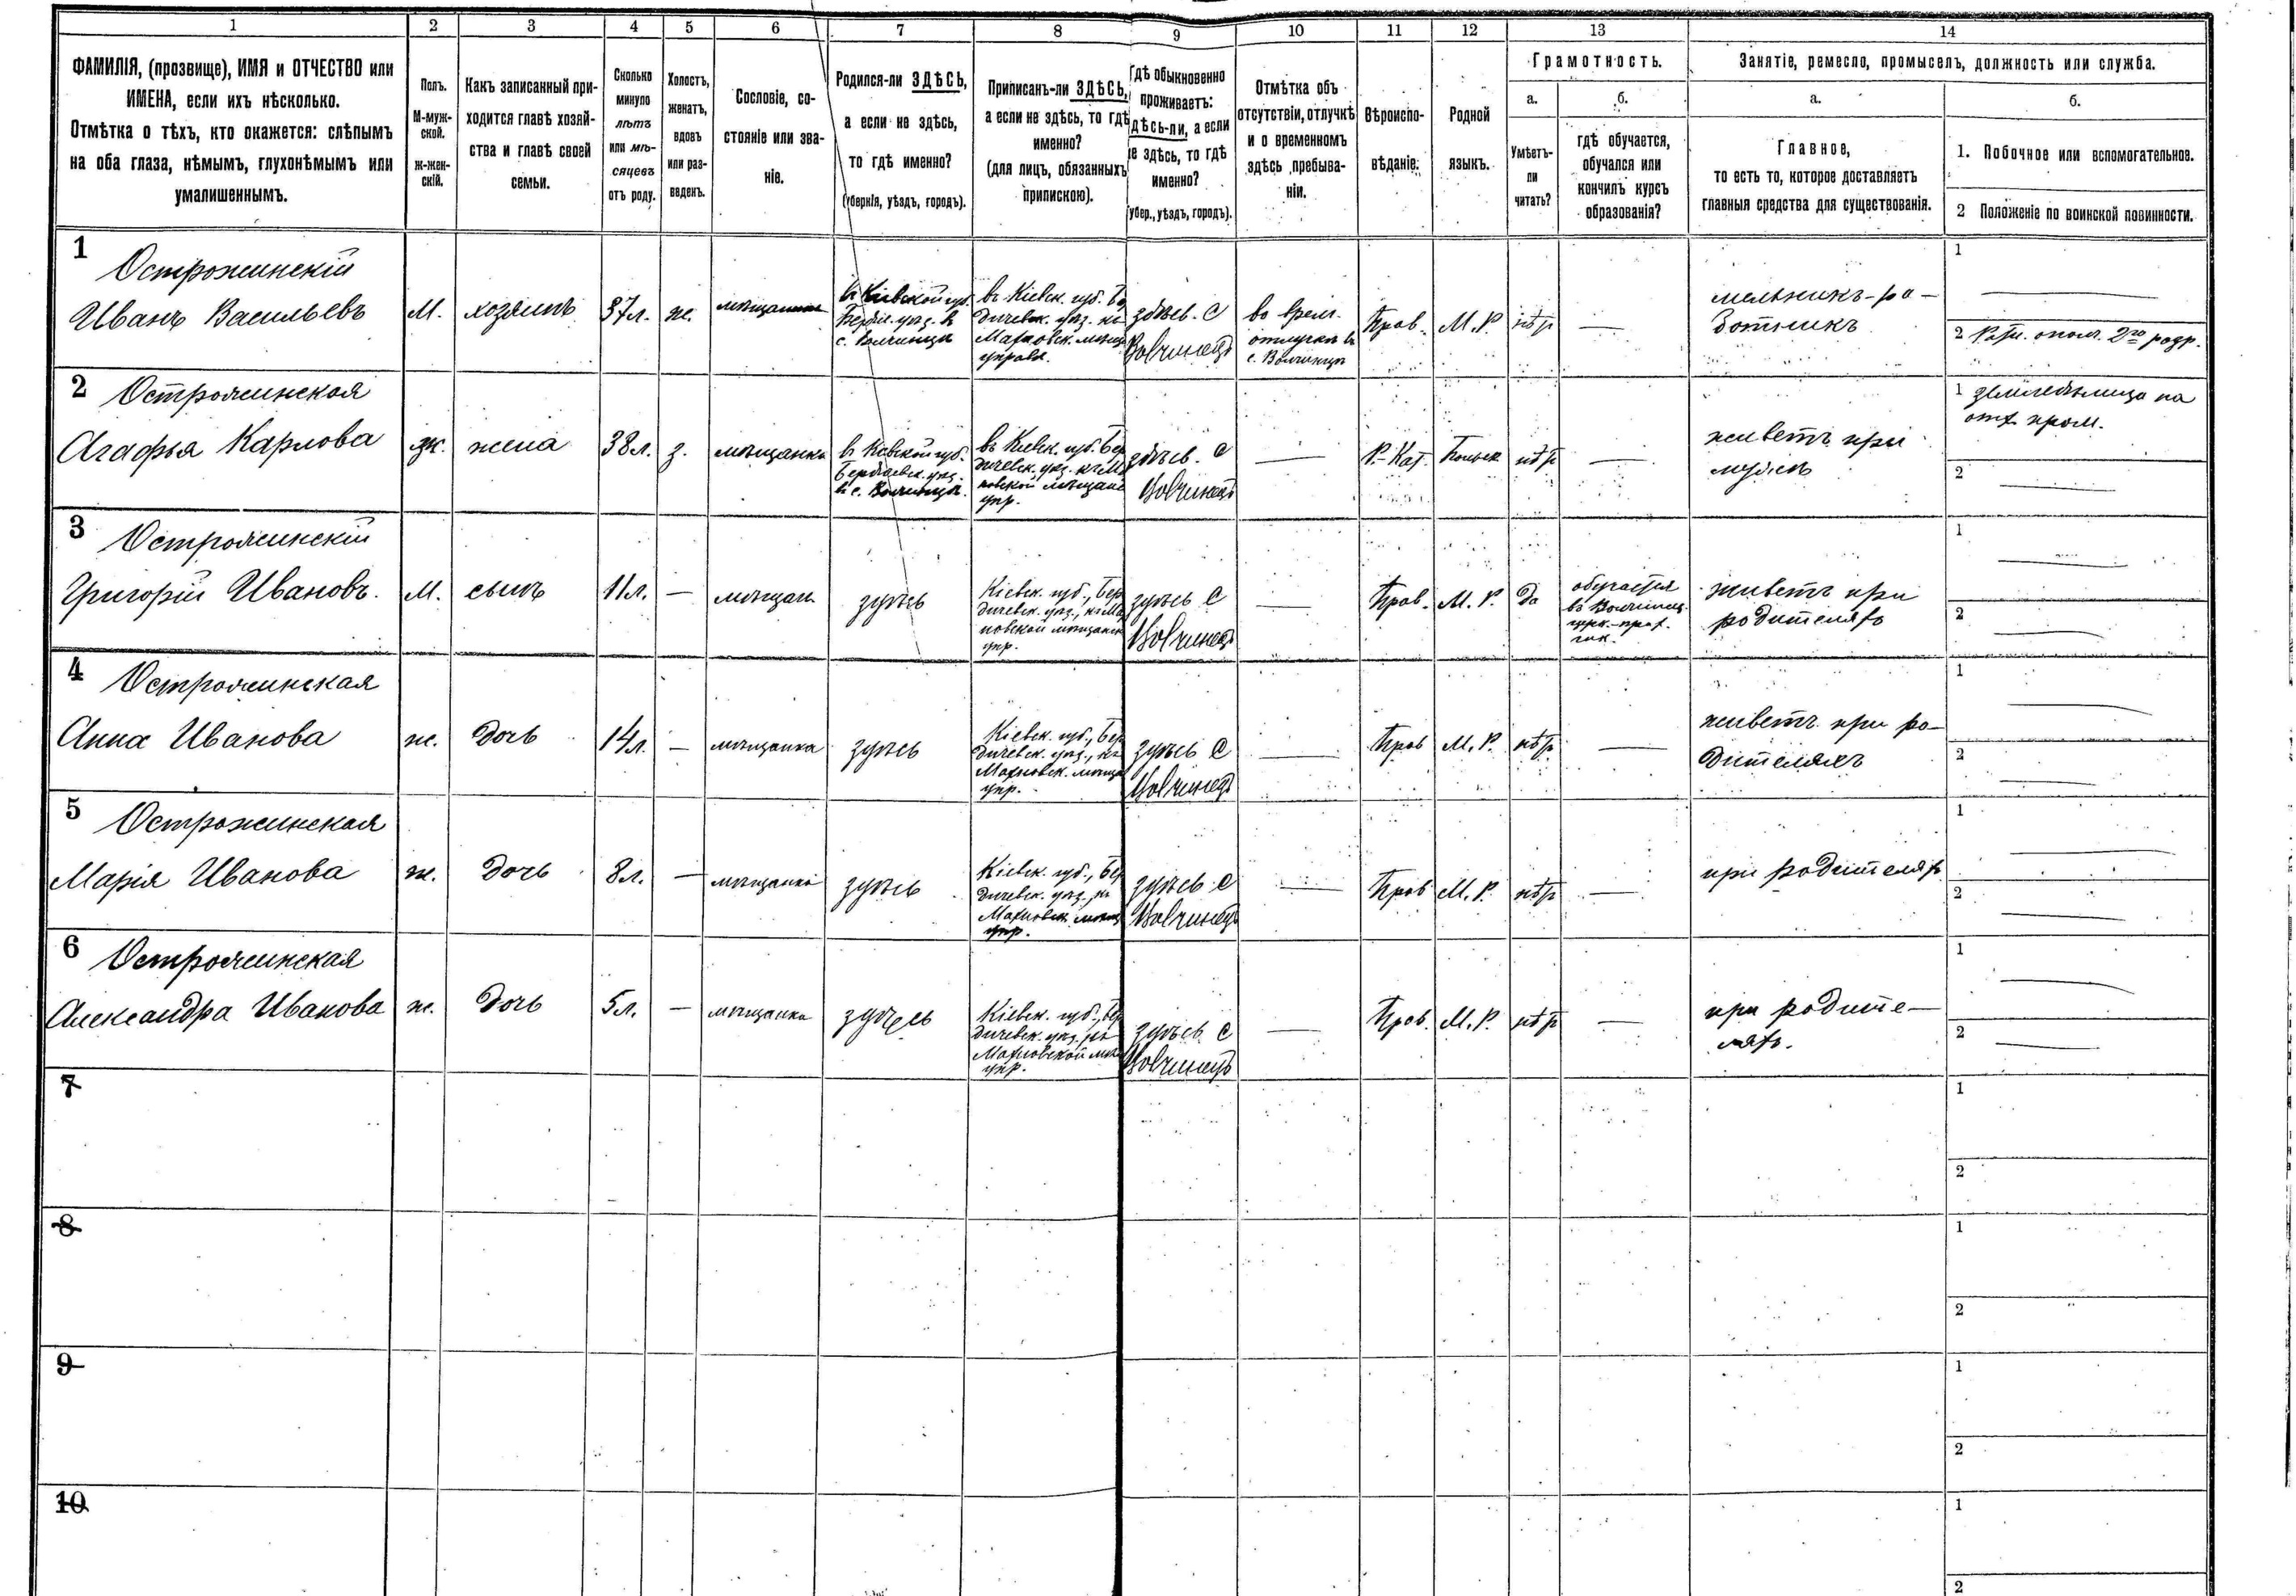 1 2 3 4 5 6 7 8 9 10 11 12 13 14
ФАМИЛІЯ, (прозвище), ИМЯ и ОТЧЕСТВО или
ИМЕНА, если ихъ нѣсколько.
Отмѣтка о тѣхъ, кто окажется: слѣпымъ
на оба глаза, нѣмымъ, глухонѣмымъ или
умалишеннымъ.
Полъ.
М-муж-
ской.
ж-жен-
скій.
Какъ записанный при-
ходится главѣ хозяй-
ства и главѣ своей
семьи.
Сколько
минуло
лѣтъ
или мѣ-
сяцевъ
отъ роду.
Холостъ,
женатъ,
вдовъ
или раз-
веденъ.
Сословіе, со-
стояніе или зва-
ніе.
Родился-ли ЗДѢСЬ,
а если не здѣсь,
то гдѣ именно?
(губернія, уѣздъ, городъ).
Приписанъ-ли ЗДѢСЬ,
а если не здѣсь, то гдѣ
именно?
(для лицъ, обязанныхъ
припискою).
Гдѣ обыкновенно
проживаетъ:
здѣсь-ли, а если
не здѣсь, то гдѣ
именно?
(губер., уѣздъ, городъ).
Отмѣтка объ
отсутствіи, отлучкѣ
и о временномъ
здѣсь пребыва-
ніи.
Вѣроиспо-
вѣданіе.
Родной
языкъ.
Грамотность.
а.
Умѣетъ-
ли
читать?
б.
гдѣ обучается,
обучался или
кончилъ курсъ
образованія?
Занятіе, ремесло, промыселъ, должность или служба.
а.
Главное,
то есть то, которое доставляетъ
главныя средства для существованія.
б.
1. Побочное или вспомогательное.
2 Положеніе по воинской повинности.
1 Острожинскій
Иванъ Васильевъ
М.
хозяинъ
37л.
ж.
въ Кіевской губ.
в Кіевск. губ. Бе
дичевск. уѣз. къ
Махновск. мѣщ
управл.
здѣсь. с
Вовчинецъ
во врем.
отлучкѣ в
Прав.
М.Р.
нѣтъ
мельникъ-ра-
ботникъ
1
2 Ратн. ополч. 2го разр.
2 Острожинская
Агафья Карлова
ж.
жена
38л.
з.
мѣщанка
в Кіевской губ.
Бердичевск. уѣз.
въ Кіевск. губ. Бер
дичевск. уѣз. къ Мах
новской мѣщанс
упр.
здѣсь. с
Вовчинецъ
Р.-Кат.
Польск
нѣтъ
живетъ при
мужѣ
1
2
3 Острожинскій
Григорій Ивановъ.
М.
сынъ
11л.
мѣщан.
здѣсь
Кіевск. губ., Бер
дичевск. уѣз., къ Мах
новской мѣщанск
упр.
здѣсь с
Вовчинецъ
Прав.
М.Р.
да
обучается
живетъ при
родителяхъ
1
2
4 Острожинская
Анна Иванова
ж.
дочь
14л.
мѣщанка
здѣсь
Кіевск. губ., Бер
дичевск. уѣз., къ
Махновск. мѣща
упр.
здѣсь с
Вовчинецъ
Прав
М.Р.
нѣтъ
живетъ при ро-
дителяхъ
1
2
5 Острожинская
Марія Иванова
ж.
дочь
8л.
мѣщанка
здѣсь
Кіевск. губ., Бер
дичевск. уѣз., къ
Махновск. мѣщ
упр.
здѣсь с
Вовчинецъ
Прав
М.Р.
нѣтъ
при родителяхъ
1
2
6 Острожинская
Александра Иванова
ж.
дочь
5л.
мѣщанка
здѣсь
Кіевск. губ., Бер
дичевск. уѣз., къ
Махновской мѣ
упр.
здѣсь с
Вовчинецъ
Прав.
М.Р.
нѣтъ
при родите-
ляхъ.
1
2
7
1
2
8
1
2
9
1
2
10
1
2